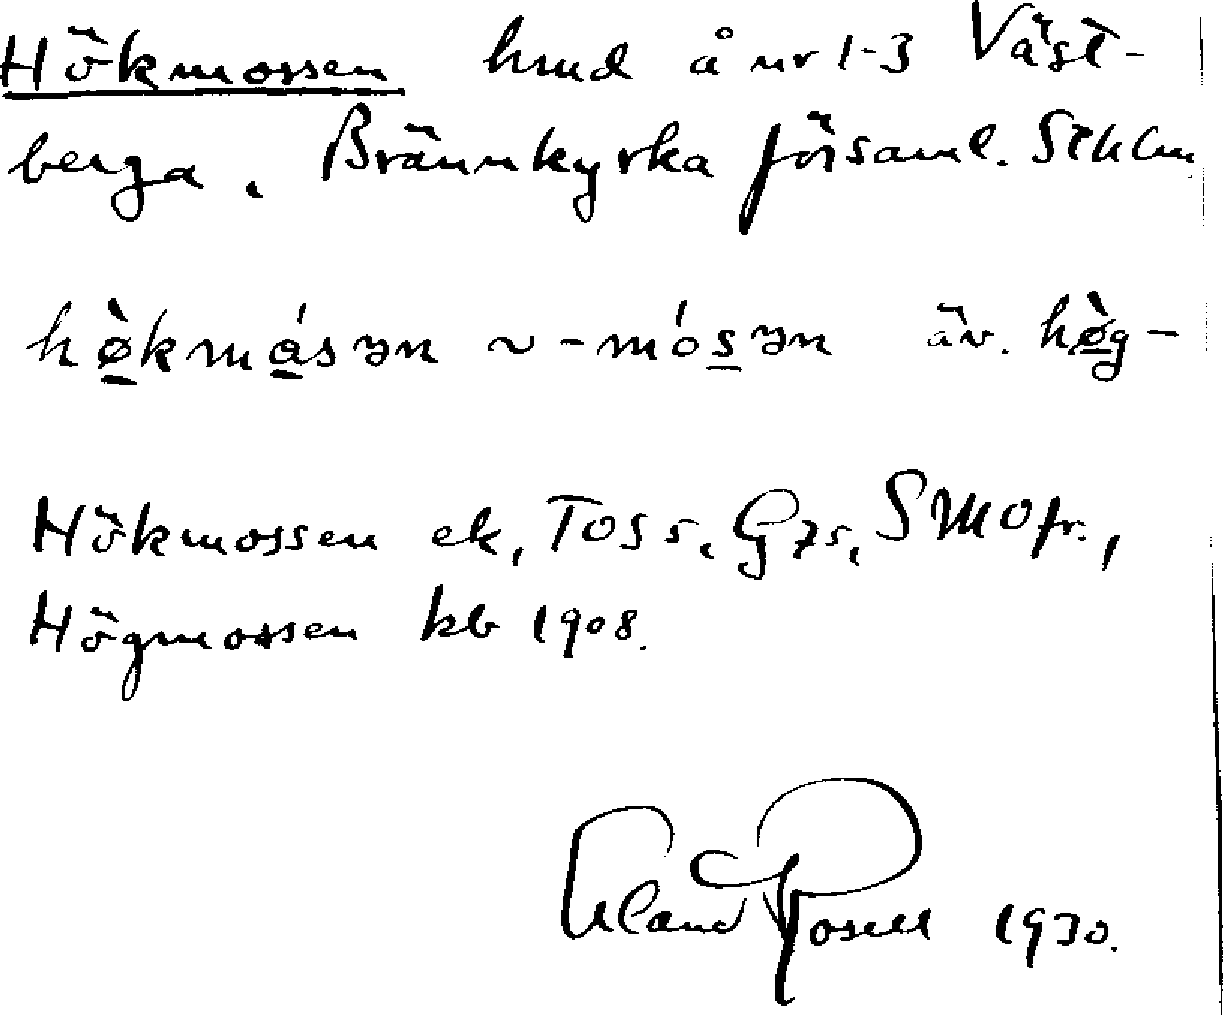 Hökmossen hmd å nr 1-3 Väst-
berga, Brännkyrka församl. Sthlm
hø̀kmásən ~ -mósən äv. hø̀g-
Hökmossen ek, TOS 5, G 75, SMOfr.,
Högmossen kb 1908.
Erland Rosell 1930.